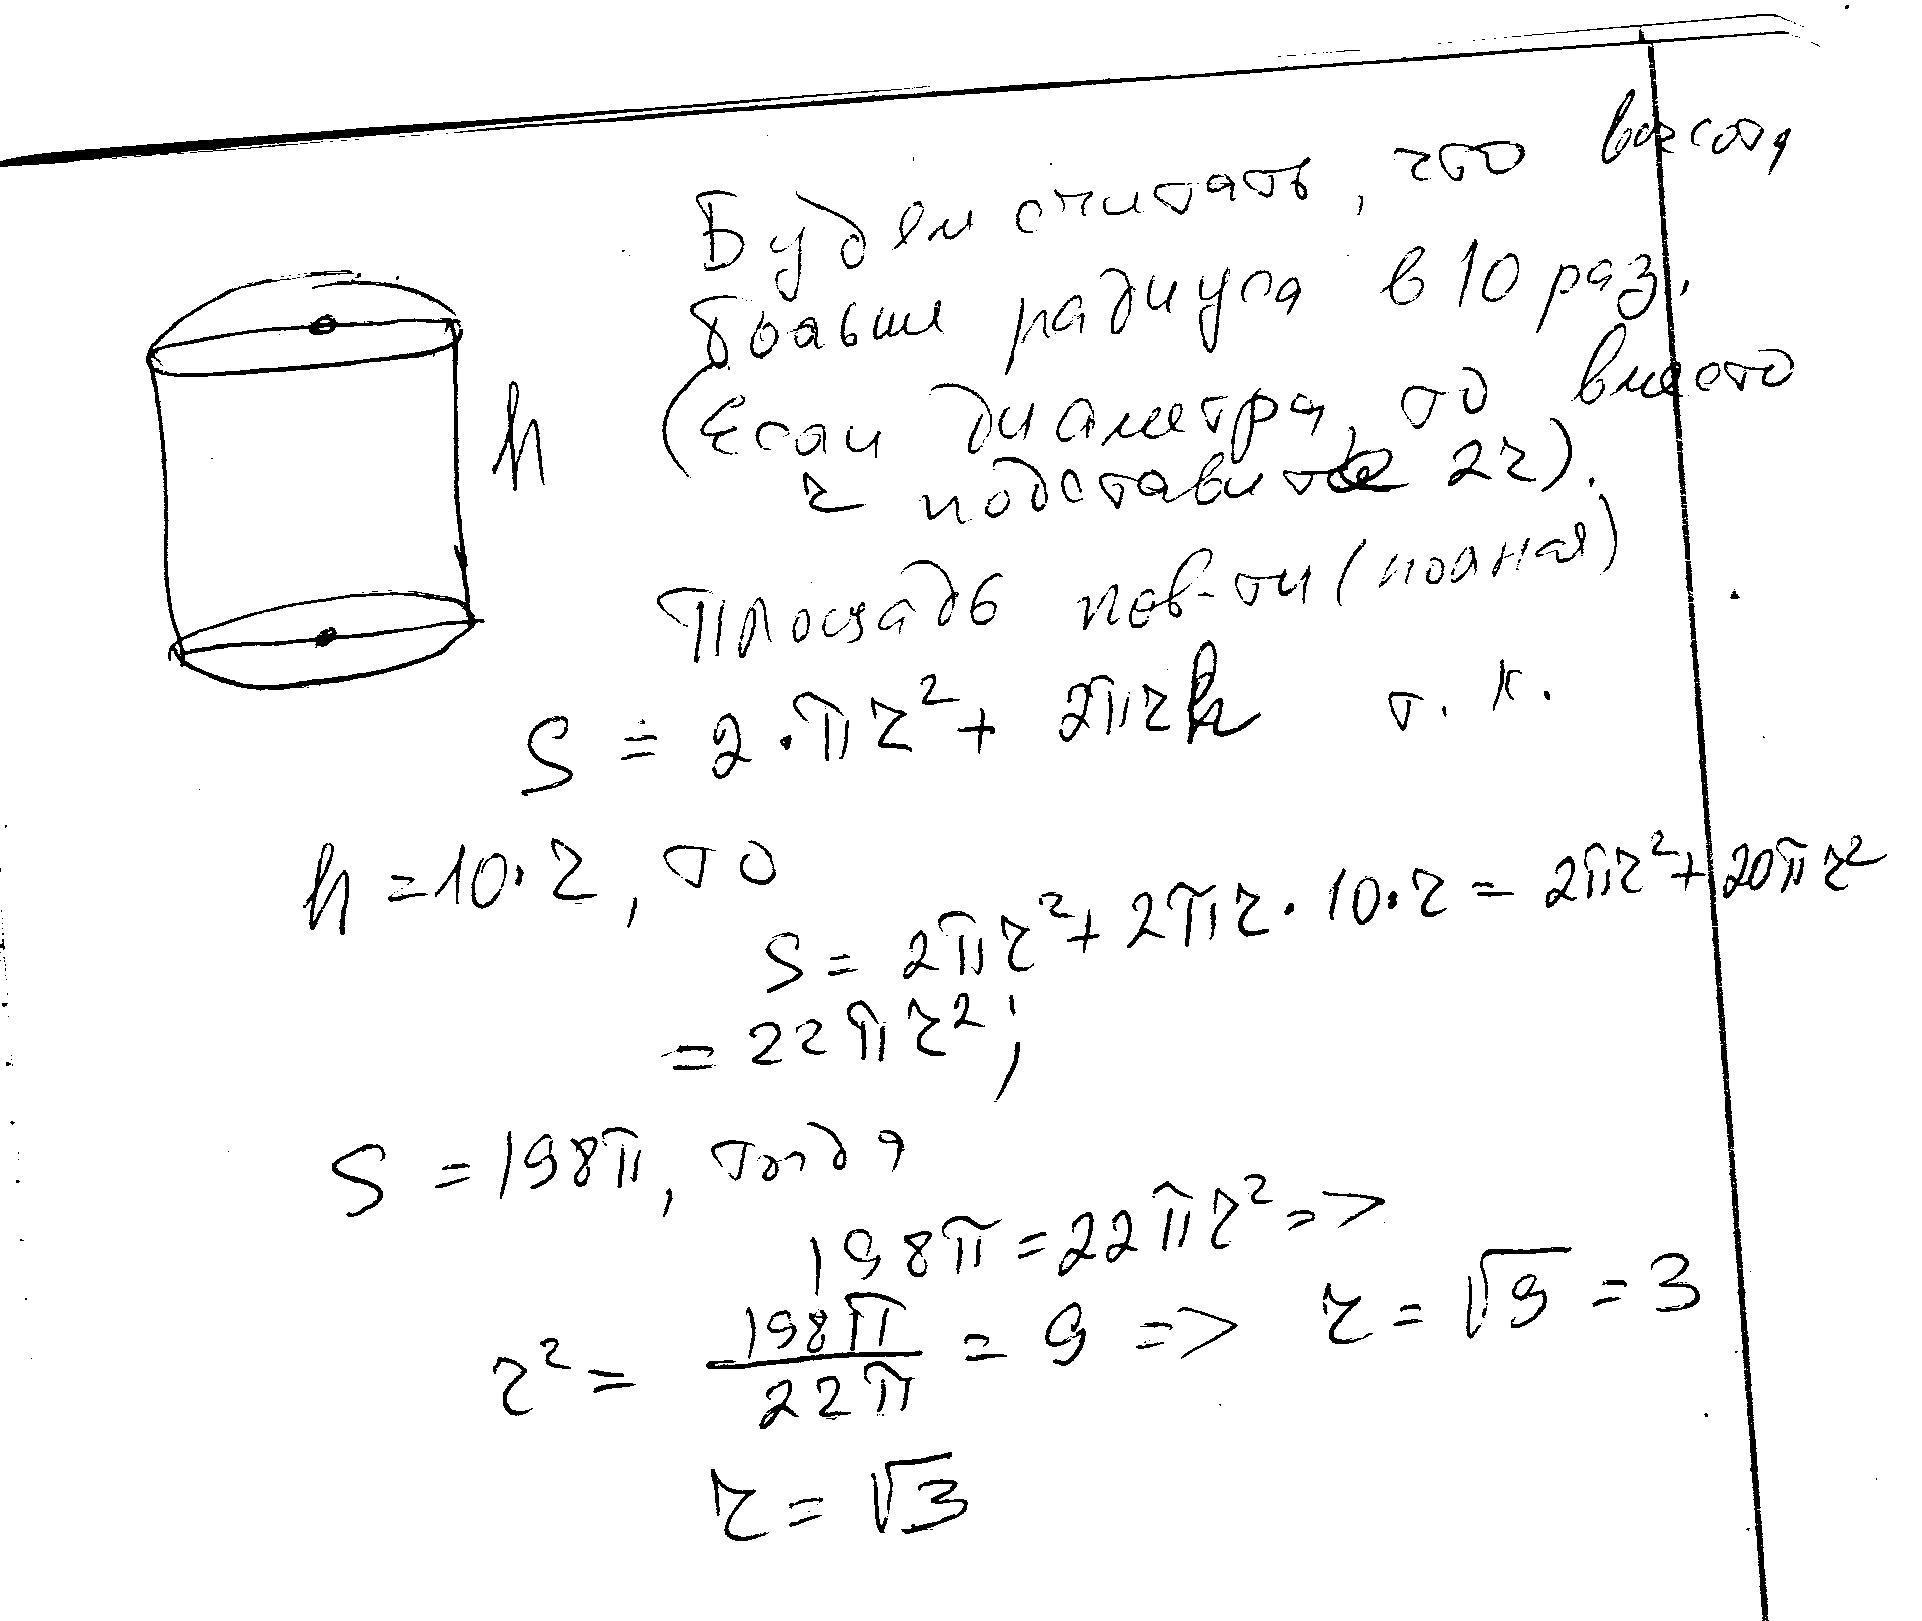 Будем считать, что высота
больше радиуса в 10 раз.
(Если диаметра, то вместо
r подставить 2r).
h
Площадь пов-ти (полная)
S = 2·πr² + 2πrh т.к.
h = 10·r, то
S = 2πr² + 2πr·10·r = 2πr² + 20πr²
= 22πr²;
S = 198π, тогда
198π = 22πr² =>
r² = 198π/22π = 9 => r = √9 = 3
r = √3